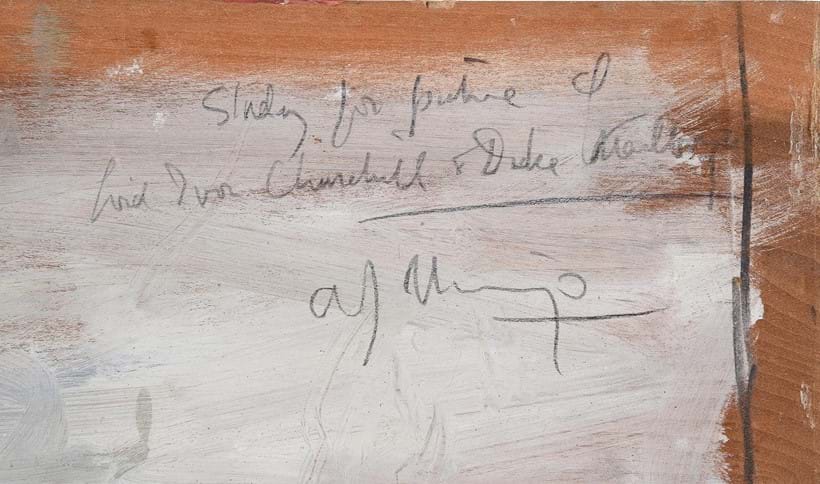 Study for picture of
Lord Ivor Churchill & Duke Marlboro
A J Munnings